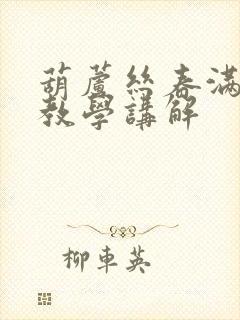 葫蘆絲春滿
教學講解
柳車英